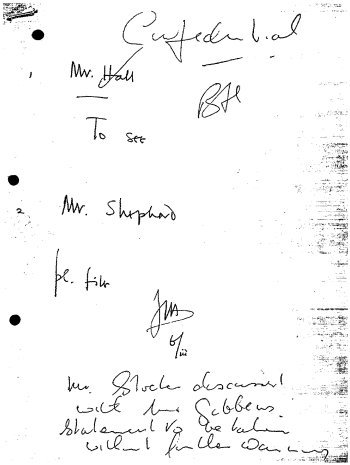 Confidential
1 Mr. Hall
BH
To see
2 Mr. Shephard
pl. file
6/iii
Mr. Stocker discussed
with Mr Gibbens.
Statement to be taken
without further warning